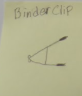 Binder Clip